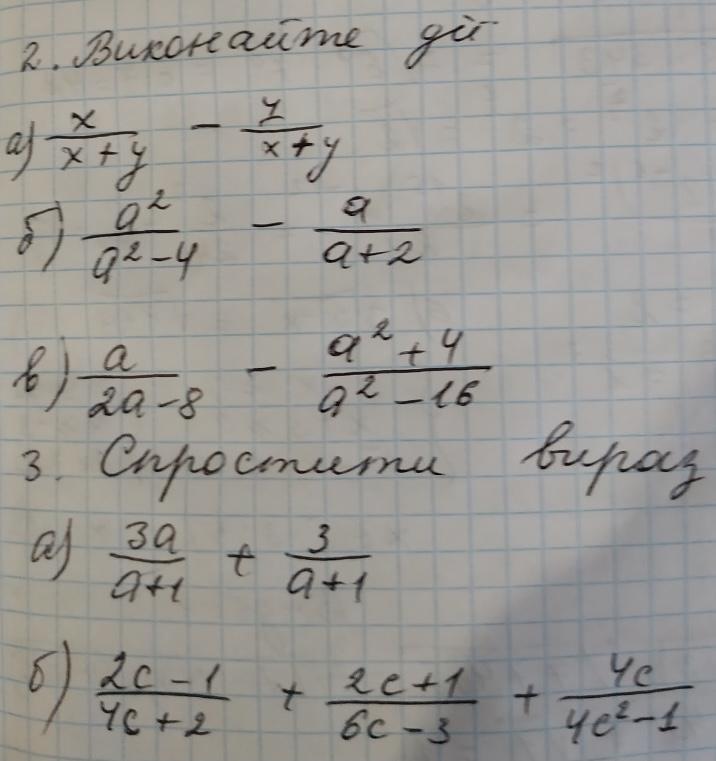 2. Виконайте дії
а) x/(x+y) - 7/(x+y)
б) a²/(a²-4) - a/(a+2)
в) a/(2a-8) - (a²+4)/(a²-16)
3. Спростити вираз
а) 3a/(a+1) + 3/(a+1)
б) (2c-1)/(4c+2) + (2c+1)/(6c-3) + 4c/(4c²-1)